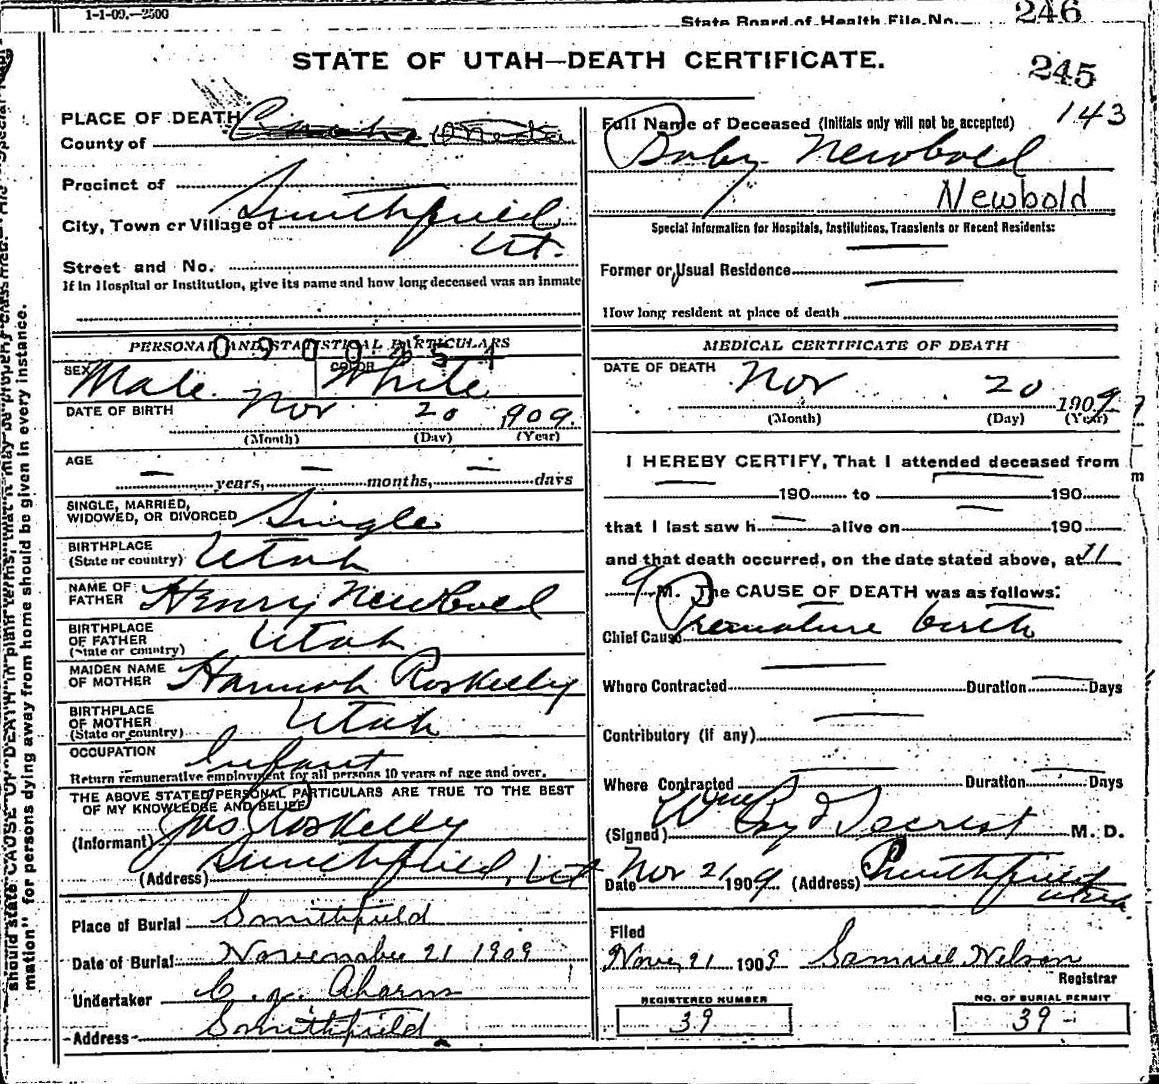 1-1-09.—2500
State Board of Health File No. 246
STATE OF UTAH—DEATH CERTIFICATE.
245
143
PLACE OF DEATH
County of
Precinct of
City, Town or Village of Smithfield
Ut.
Street and No.
If in Hospital or Institution, give its name and how long deceased was an inmate
PERSONAL AND STATISTICAL PARTICULARS
SEX Male COLOR White
DATE OF BIRTH Nov 20 1909.
(Month) (Day) (Year)
AGE
— years, — months, — days
SINGLE, MARRIED,
WIDOWED, OR DIVORCED Single
BIRTHPLACE
(State or country) Utah
NAME OF
FATHER Henry Newbold
BIRTHPLACE
OF FATHER
(State or country) Utah
MAIDEN NAME
OF MOTHER Hannah Roskelley
BIRTHPLACE
OF MOTHER
(State or country) Utah
OCCUPATION Infant
Return remunerative employment for all persons 10 years of age and over.
THE ABOVE STATED PERSONAL PARTICULARS ARE TRUE TO THE BEST
OF MY KNOWLEDGE AND BELIEF
(Informant) Jas Roskelley
(Address) Smithfield, Ut
Place of Burial Smithfield
Date of Burial November 21 1909
Undertaker
Address Smithfield
Full Name of Deceased (Initials only will not be accepted)
Baby Newbold
Newbold
Special Information for Hospitals, Institutions, Transients or Recent Residents:
Former or Usual Residence
How long resident at place of death
MEDICAL CERTIFICATE OF DEATH
DATE OF DEATH Nov 20 1909
(Month) (Day) (Year)
I HEREBY CERTIFY, That I attended deceased from
— 190 to — 190
that I last saw h — alive on — 190
and that death occurred, on the date stated above, at 11
M. The CAUSE OF DEATH was as follows:
Chief Cause Premature birth
Where Contracted Duration — Days
Contributory (if any) —
Where Contracted — Duration — Days
(Signed) M. D.
Date Nov 21 1909 (Address) Smithfield
Utah
Filed
Nov. 21 1909 Samuel Nelson
Registrar
REGISTERED NUMBER
39
NO. OF BURIAL PERMIT
39
should state CAUSE OF DEATH in plain terms, that it may be properly classified.
mation" for persons dying away from home should be given in every instance.